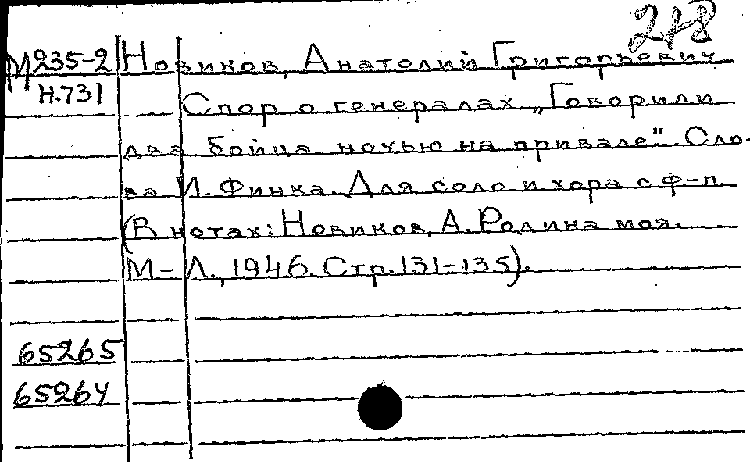 218
М235-2 Новиков, Анатолий Григорьевич
Н.731 Спор о генералах „Говорили
два бойца ночью на привале". Сло-
ва И. Финка. Для соло и хора с ф-п.
(В нотах: Новиков, А. Родина моя.
М-Л., 1946. Стр. 131-135).
65265
65264